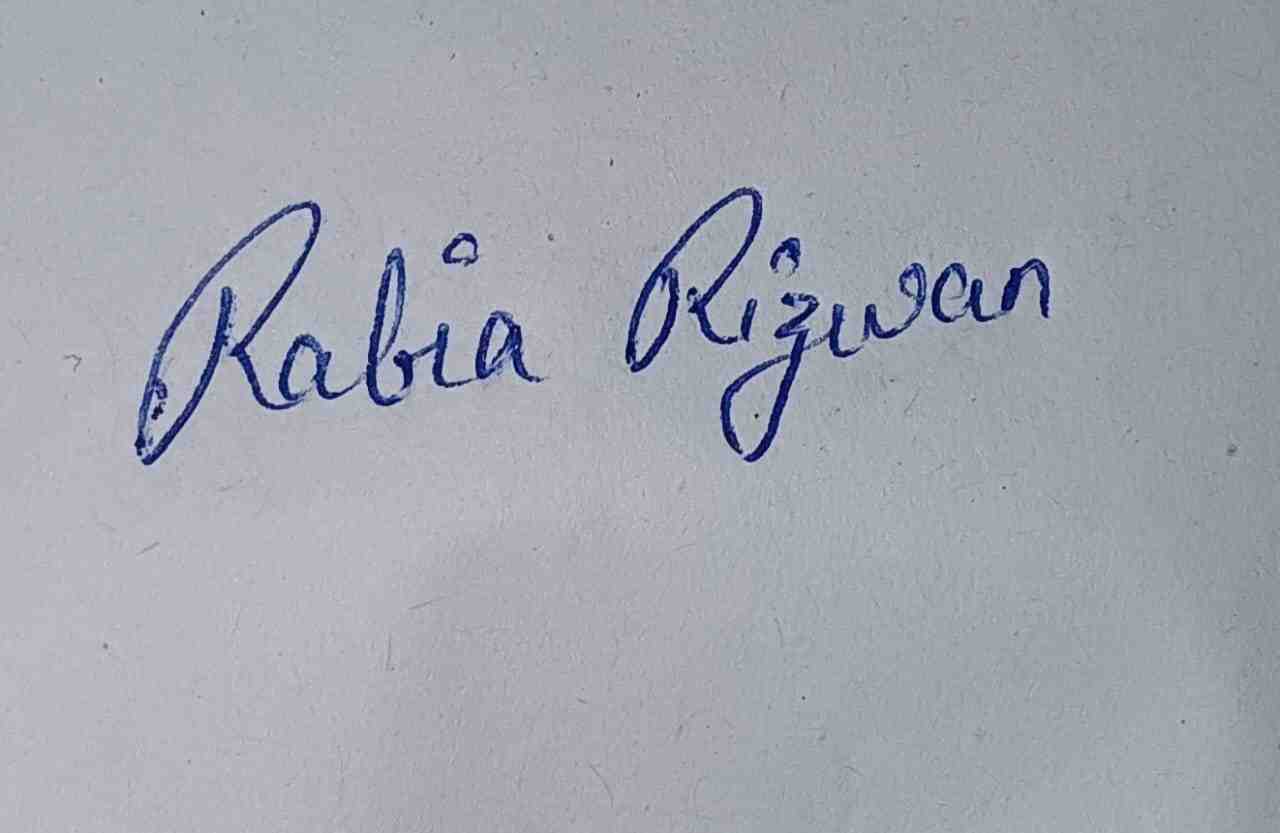 Rabia Rizwan